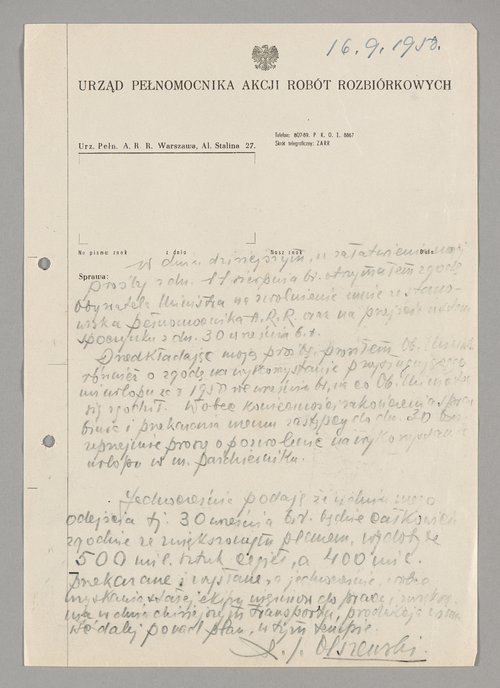 16.9.1950.
URZĄD PEŁNOMOCNIKA AKCJI ROBÓT ROZBIÓRKOWYCH
Urz. Pełn. A. R R. Warszawa, Al. Stalina 27.
Telefon: 807-89. P. K. O. I. 8867
Skrót telegraficzny: ZARR
Na pismo znak z dnia Nasz znak Data:
Sprawa:
W dniu dzisiejszym, w załatwieniu mojej
prośby z dn. 11 sierpnia br. otrzymałem zgodę
Obywatela Ministra na zwolnienie mnie ze stano-
wiska pełnomocnika A.R.R. oraz na przejście w stan
spoczynku z dn. 30 września b.r.
Przedkładając moją prośbę prosiłem Ob. Ministra
również o zgodę na wykorzystanie przysługującego
mi urlopu za r 1950 we wrześniu br, na co Ob. Minister
się zgodził. Wobec konieczności zakończenia spraw
i przekazania memu zastępcy do dn. 30 bm.
uprzejmie proszę o pozwolenie na wykorzystanie
urlopu w m. październiku.
Jednocześnie podaję że w dniu mego
odejścia tj. 30 września b.r. będzie całkowicie
zgodnie ze zwiększonym planem, wydobyte
500 mil. sztuk cegieł, a 400 mil.
przekazane i wysłane, a jednocześnie,
ekipy do pracy,
w dniu transportu, produkcja
dalej ponad plan, w tym tempie.
Olszewski.